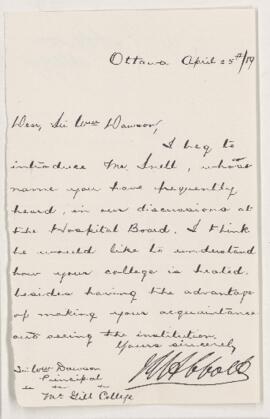 Ottawa April 25th/89
Dear Sir Wm Dawson,
I beg to
introduce Mr. Snell, whose
name you have frequently
heard, in our discussions at
the Hospital Board. I think
he would like to understand
how your college is heated.
besides having the advantage
of making your acquaintance
and seeing the institution.
Yours sincerely
Sir Wm Dawson
Principal
McGill College